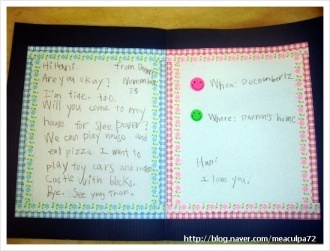 Hi Hani. from Darren
Are you okay? November
I'm fine, too. 28
Will you come to my
house for sleepover?
We can play house and
eat pizza. I want to
play toy cars and make
Castle with blocks.
Bye. See you then.
When: December 12
Where: Darren's home
Hani
I love you.
http://blog.naver.com/meaculpa72